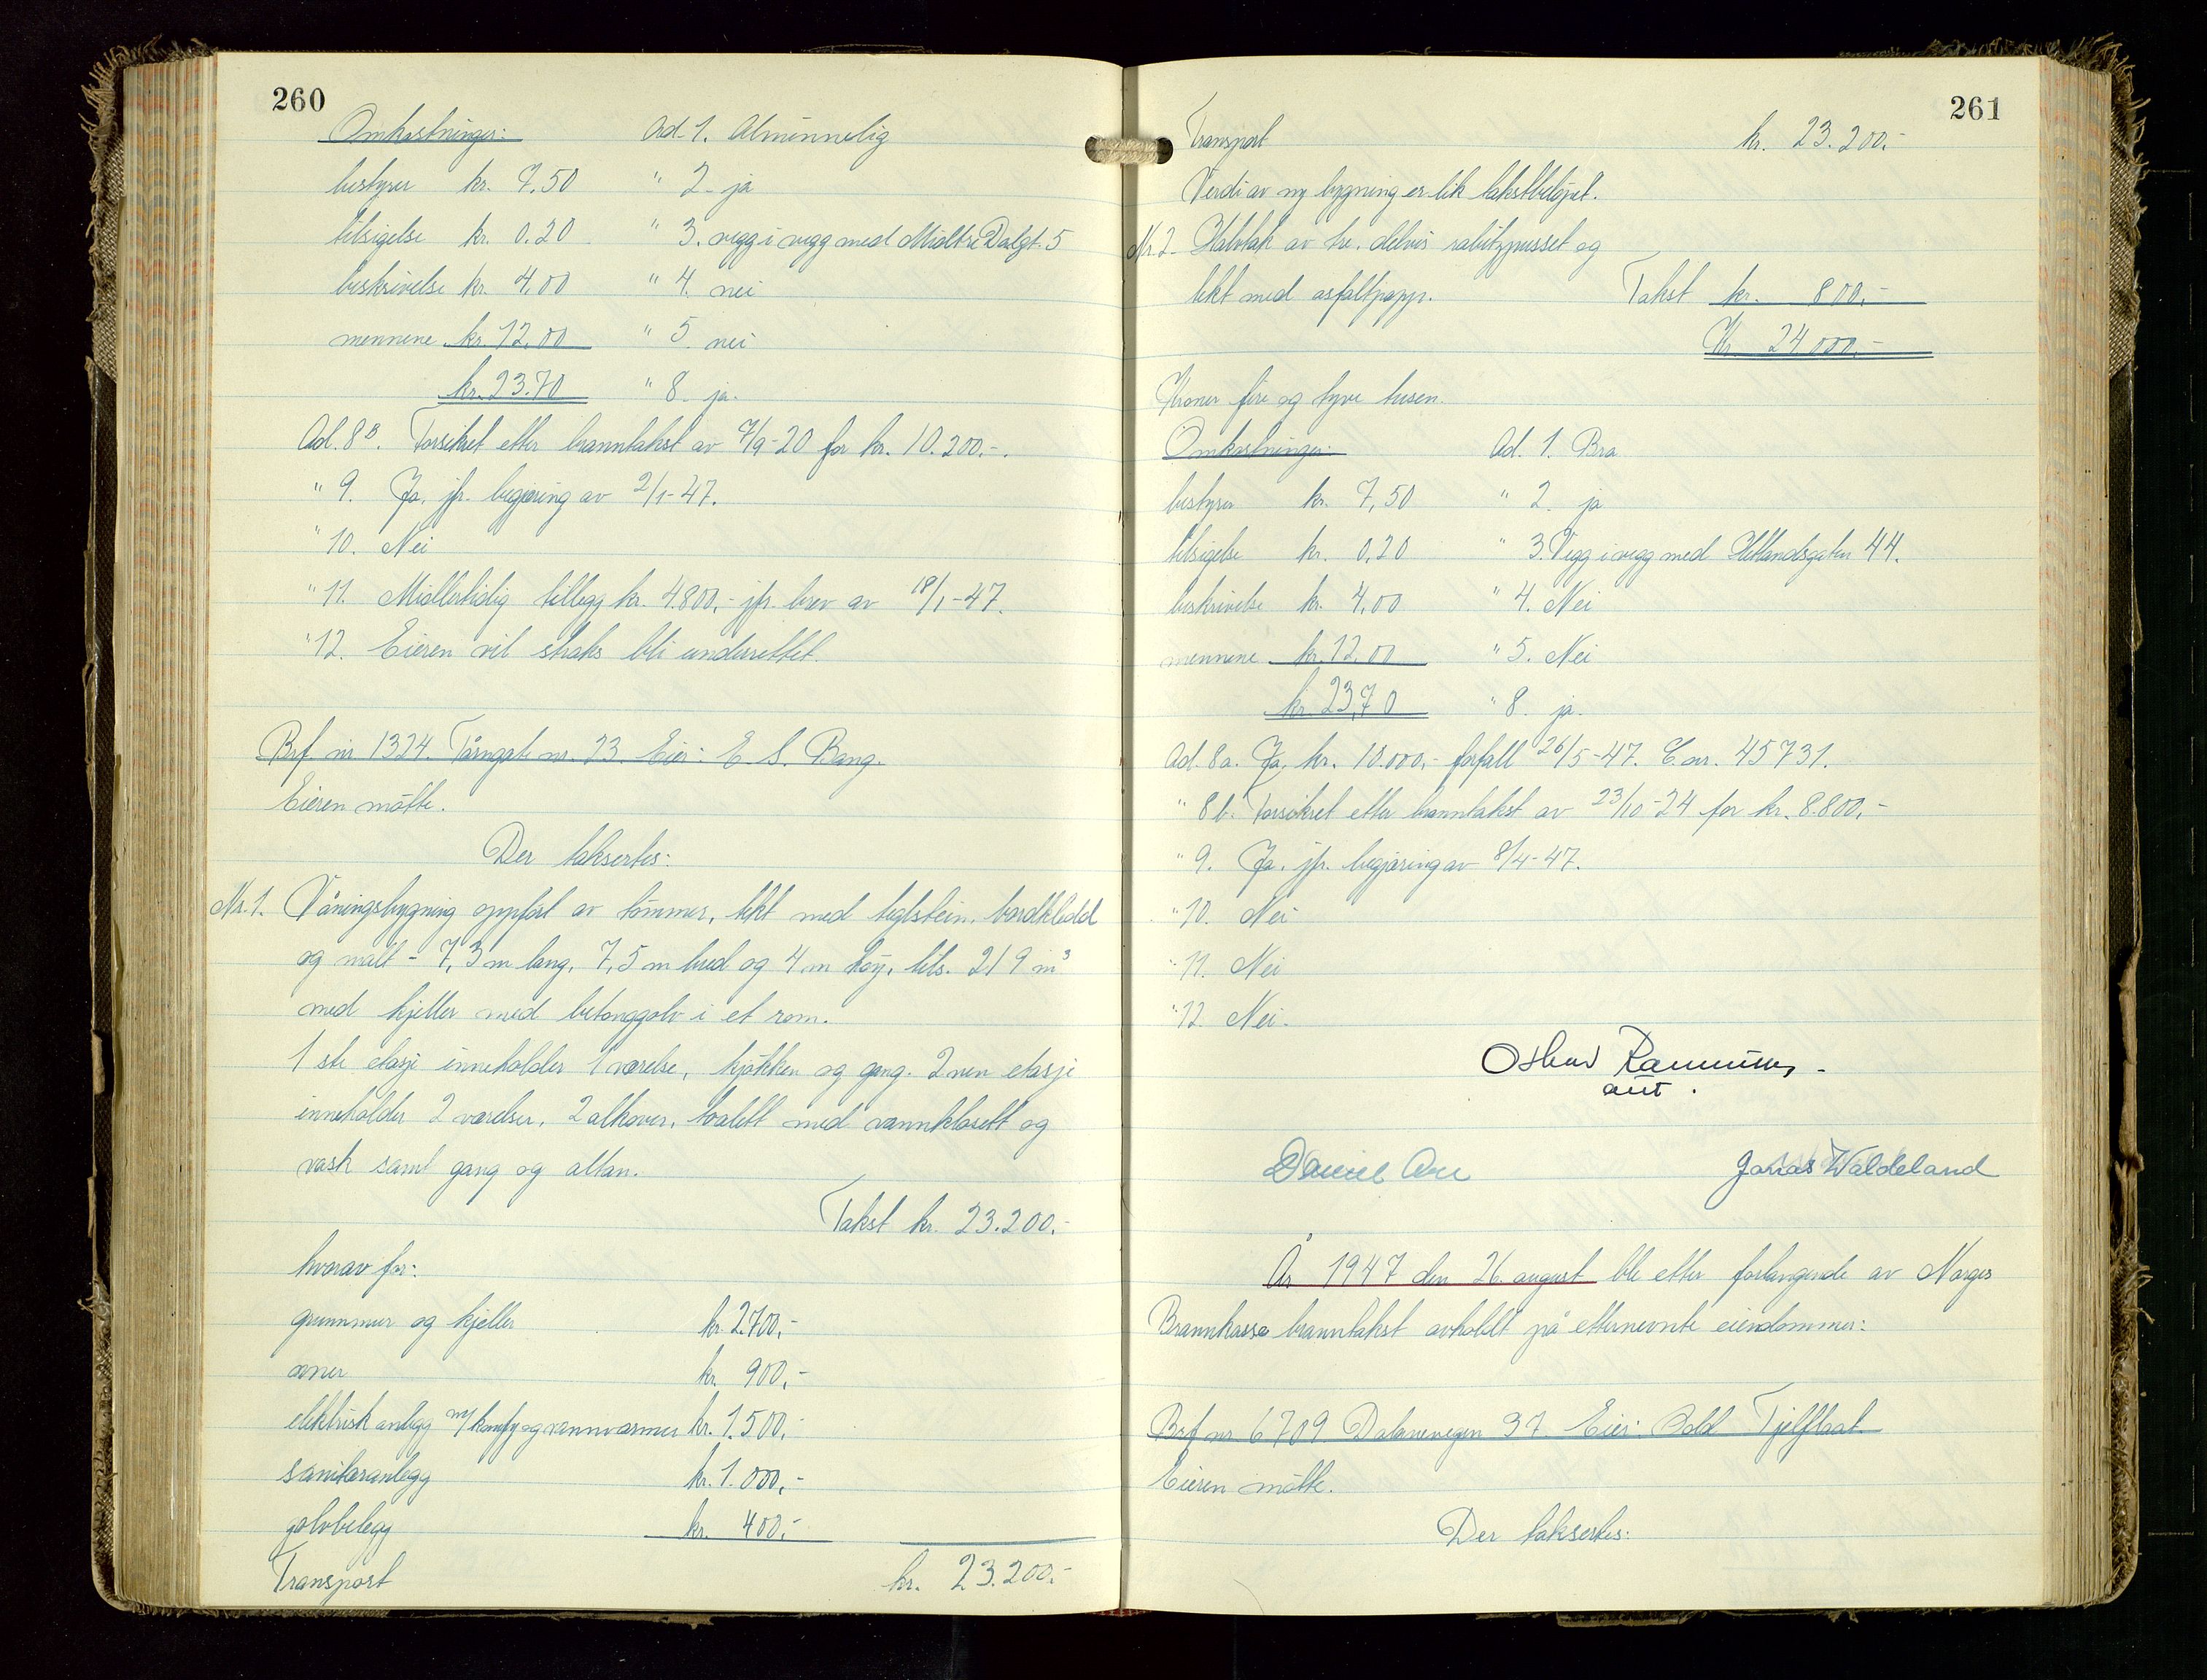 260
Omkostninger: Ad. 1. Alminnelig
bestyrer kr. 7.50 " 2. ja
tilsigelse kr. 0.20 " 3. vegg i vegg med Midtre Dalgt. 5
beskrivelse kr. 4.00 " 4. nei
mennene kr 12.00 " 5. nei
kr. 23.70 " 8. ja.
Ad. 8B. Forsikret etter branntakst av 7/9-20 for kr. 10.200.-.
" 9. Ja. jfr. begjæring av 2/1-47.
" 10. Nei
" 11. Midlertidig tillegg kr. 4.800,- jfr. brev av 18/1-47.
" 12. Eieren vil straks bli underrettet.
Brf. nr. 1324. Tårngate nr. 23. Eier: E. S. Bang.
Eieren møtte.
Der taksertes:
Nr. 1. Våningsbygning oppført av tømmer, tekt med teglstein, bordkledd
og malt - 7,3 m lang, 7,5 m bred og 4 m høy, tils. 219 m³
med kjeller med betonggolv i et rom.
1 ste etasje inneholder 1 værelse, kjøkken og gang. 2 nen etasje
inneholder 2 værelser, 2 alkover, toalett med vannklosett og
vask samt gang og altan.
Takst kr. 23.200.-
hvorav for:
grunnmur og kjeller kr. 2.700,-
ovner kr. 900,-
elektrisk anlegg m/ komfy og vannvarmer kr. 1.500,-
sanitæranlegg kr. 1.000,-
golvbelegg kr. 400,-
Transport kr. 23.200.-
261
Transport kr. 23.200.-
Verdi av ny bygning er lik takstbeløpet.
Nr. 2. Halvtak av tre, delvis rabitzpusset og
tekt med asfaltpapp. Takst kr. 800,-
Kr. 24 000.-
Kroner fire og tyve tusen.
Omkostninger: Ad. 1. Bra
bestyrer kr. 7,50 " 2. ja
tilsigelse kr. 0,20 " 3. Vegg i vegg med Hetlandsgaten 44.
beskrivelse kr. 4,00 " 4. Nei
mennene kr. 12.00 " 5. Nei
kr. 23,70 " 8. ja.
Ad. 8a. Ja, kr. 10.000,- forfall 26/5-47. C. nr. 45731.
" 8b. Forsikret etter branntakst av 23/10-24 for kr. 8.800,-
" 9. Ja. jfr. begjæring av 8/4-47.
" 10. Nei
" 11. Nei
" 12. Nei.
ass.
Daniel Jonas Waldeland
År 1947 den 26. august ble etter forlangende av Norges
Brannkasse branntakst avholdt på etternevnte eiendommer:
Brf nr 6709 Dalanevegen 37 Eier: Odd Tjelflaat.
Eieren møtte.
Der taksertes: